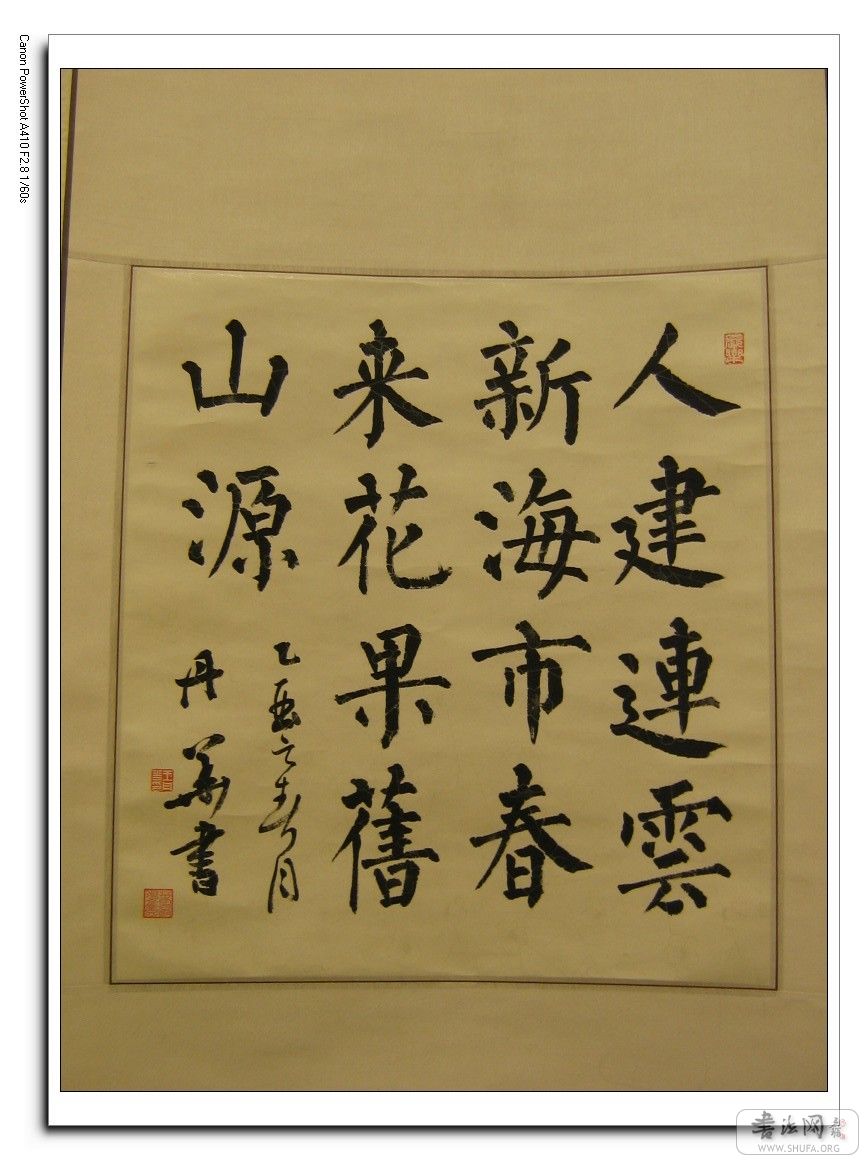 人建連雲
新海市春
来花果舊
山源
乙酉之春月
丹華書
Canon PowerShot A410 F2.8 1/60s
书法网
WWW.SHUFA.ORG